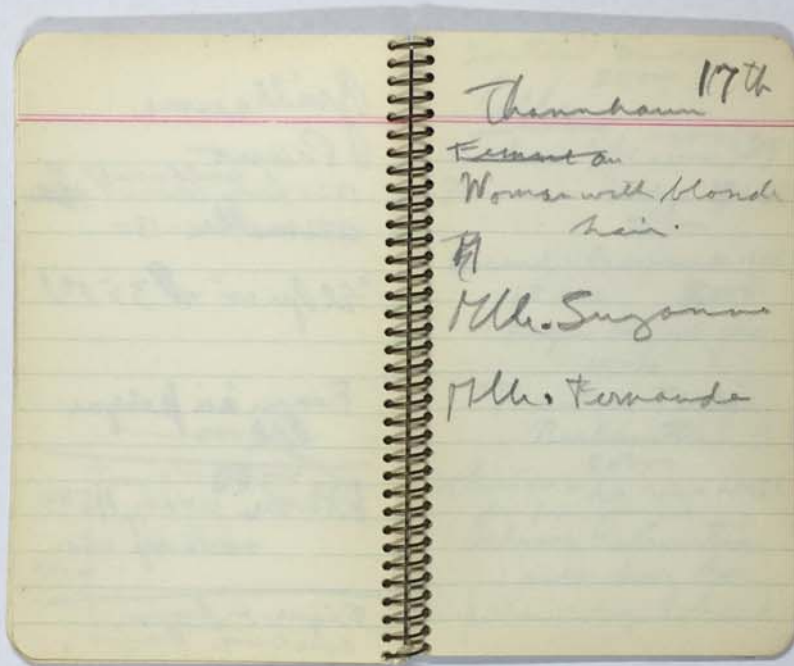 17th
Thannhauser
Woman with blonde
hair.
Mlle. Suzanne
Mlle. Fernande